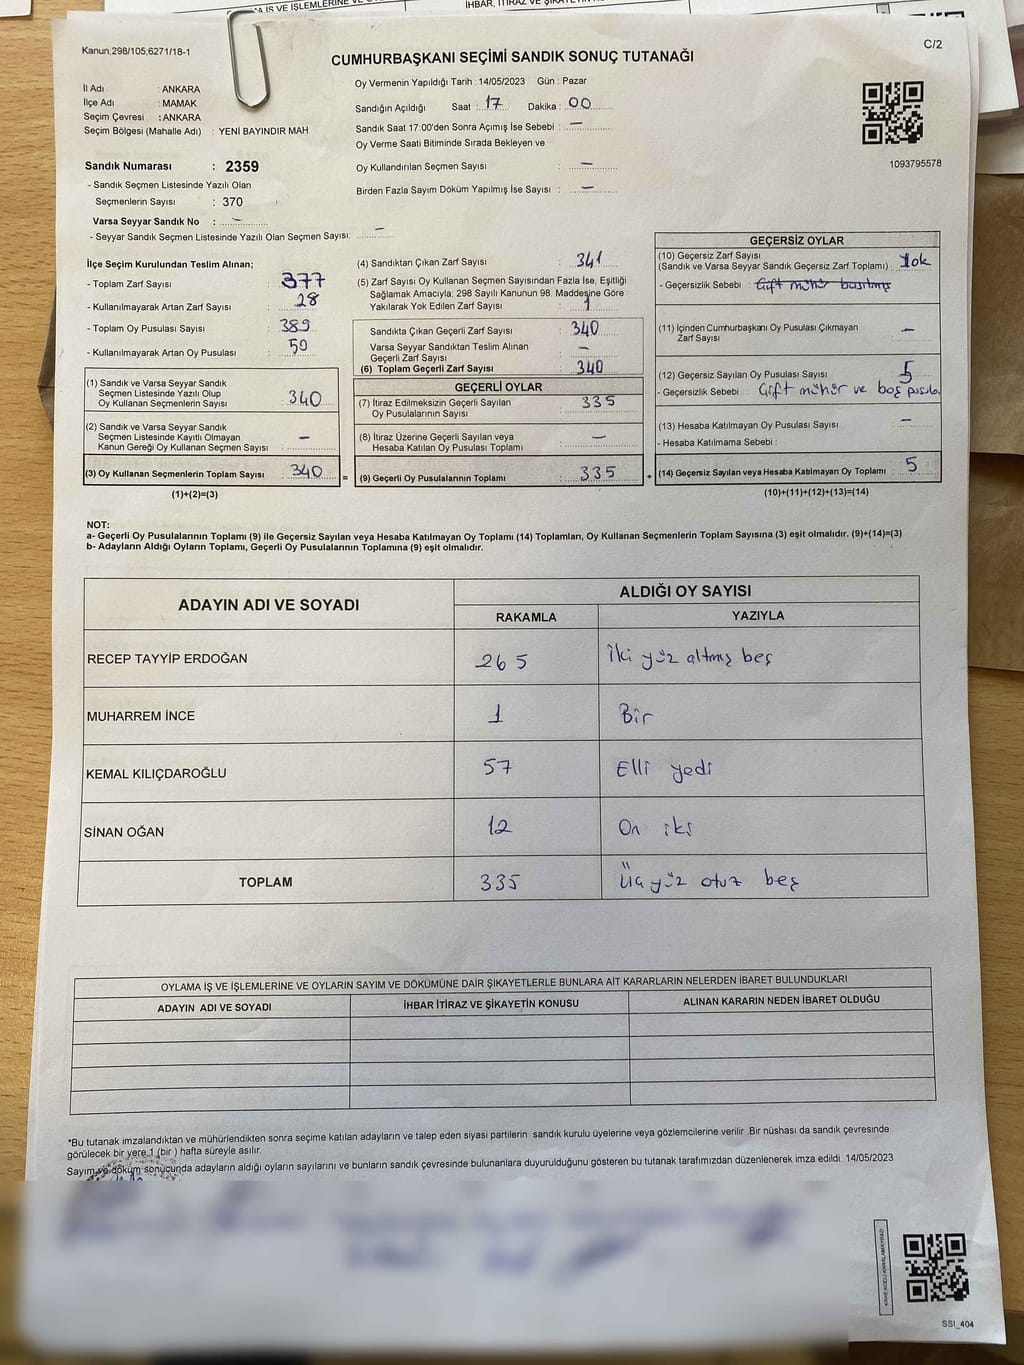 A İŞ VE İŞLEMLERİNE VE
İHBAR, İTİRAZ VE ŞİKAYETİN
Kanun:298/105,6271/18-1
C/2
CUMHURBAŞKANI SEÇİMİ SANDIK SONUÇ TUTANAĞI
İl Adı : ANKARA
İlçe Adı : MAMAK
Seçim Çevresi : ANKARA
Seçim Bölgesi (Mahalle Adı) : YENİ BAYINDIR MAH
Sandık Numarası : 2359
- Sandık Seçmen Listesinde Yazılı Olan
Seçmenlerin Sayısı : 370
Varsa Seyyar Sandık No : –
- Seyyar Sandık Seçmen Listesinde Yazılı Olan Seçmen Sayısı: –
Oy Vermenin Yapıldığı Tarih : 14/05/2023 Gün : Pazar
Sandığın Açıldığı Saat : 17 Dakika : 00
Sandık Saat 17:00'den Sonra Açımış İse Sebebi : –
Oy Verme Saati Bitiminde Sırada Bekleyen ve
Oy Kullandırılan Seçmen Sayısı : –
Birden Fazla Sayım Döküm Yapılmış İse Sayısı : –
1093795578
İlçe Seçim Kurulundan Teslim Alınan;
- Toplam Zarf Sayısı : 377
- Kullanılmayarak Artan Zarf Sayısı : 28
- Toplam Oy Pusulası Sayısı : 389
- Kullanılmayarak Artan Oy Pusulası : 50
(1) Sandık ve Varsa Seyyar Sandık
Seçmen Listesinde Yazılı Olup
Oy Kullanan Seçmenlerin Sayısı : 340
(2) Sandık ve Varsa Seyyar Sandık
Seçmen Listesinde Kayıtlı Olmayan
Kanun Gereği Oy Kullanan Seçmen Sayısı : –
(3) Oy Kullanan Seçmenlerin Toplam Sayısı : 340
(1)+(2)=(3)
(4) Sandıktan Çıkan Zarf Sayısı : 341
(5) Zarf Sayısı Oy Kullanan Seçmen Sayısından Fazla İse, Eşitliği
Sağlamak Amacıyla; 298 Sayılı Kanunun 98. Maddesine Göre
Yakılarak Yok Edilen Zarf Sayısı : 1
Sandıkta Çıkan Geçerli Zarf Sayısı : 340
Varsa Seyyar Sandıktan Teslim Alınan
Geçerli Zarf Sayısı : –
(6) Toplam Geçerli Zarf Sayısı : 340
GEÇERLİ OYLAR
(7) İtiraz Edilmeksizin Geçerli Sayılan
Oy Pusulalarının Sayısı : 335
(8) İtiraz Üzerine Geçerli Sayılan veya
Hesaba Katılan Oy Pusulası Toplamı : –
= (9) Geçerli Oy Pusulalarının Toplamı : 335 +
GEÇERSİZ OYLAR
(10) Geçersiz Zarf Sayısı
(Sandık ve Varsa Seyyar Sandık Geçersiz Zarf Toplamı) : Yok
- Geçersizlik Sebebi : Çift mühür basılmış
(11) İçinden Cumhurbaşkanı Oy Pusulası Çıkmayan
Zarf Sayısı : –
(12) Geçersiz Sayılan Oy Pusulası Sayısı : 5
- Geçersizlik Sebebi : Çift mühür ve boş pusula
(13) Hesaba Katılmayan Oy Pusulası Sayısı : –
- Hesaba Katılmama Sebebi :
(14) Geçersiz Sayılan veya Hesaba Katılmayan Oy Toplamı : 5
(10)+(11)+(12)+(13)=(14)
NOT:
a- Geçerli Oy Pusulalarının Toplamı (9) ile Geçersiz Sayılan veya Hesaba Katılmayan Oy Toplamı (14) Toplamları, Oy Kullanan Seçmenlerin Toplam Sayısına (3) eşit olmalıdır. (9)+(14)=(3)
b- Adayların Aldığı Oyların Toplamı, Geçerli Oy Pusulalarının Toplamına (9) eşit olmalıdır.
ADAYIN ADI VE SOYADI ALDIĞI OY SAYISI
RAKAMLA YAZIYLA
RECEP TAYYİP ERDOĞAN 265 İki yüz altmış beş
MUHARREM İNCE 1 Bir
KEMAL KILIÇDAROĞLU 57 Elli yedi
SİNAN OĞAN 12 On iki
TOPLAM 335 Üç yüz otuz beş
OYLAMA İŞ VE İŞLEMLERİNE VE OYLARIN SAYIM VE DÖKÜMÜNE DAİR ŞİKAYETLERLE BUNLARA AİT KARARLARIN NELERDEN İBARET BULUNDUKLARI
ADAYIN ADI VE SOYADI İHBAR İTİRAZ VE ŞİKAYETİN KONUSU ALINAN KARARIN NEDEN İBARET OLDUĞU
*Bu tutanak imzalandıktan ve mühürlendikten sonra seçime katılan adayların ve talep eden siyasi partilerin sandık kurulu üyelerine veya gözlemcilerine verilir .Bir nüshası da sandık çevresinde
görülecek bir yere 1 (bir ) hafta süreyle asılır.
Sayım ve döküm sonucunda adayların aldığı oyların sayılarını ve bunların sandık çevresinde bulunanlara duyurulduğunu gösteren bu tutanak tarafımızdan düzenlenerek imza edildi. 14/05/2023
SSI_404